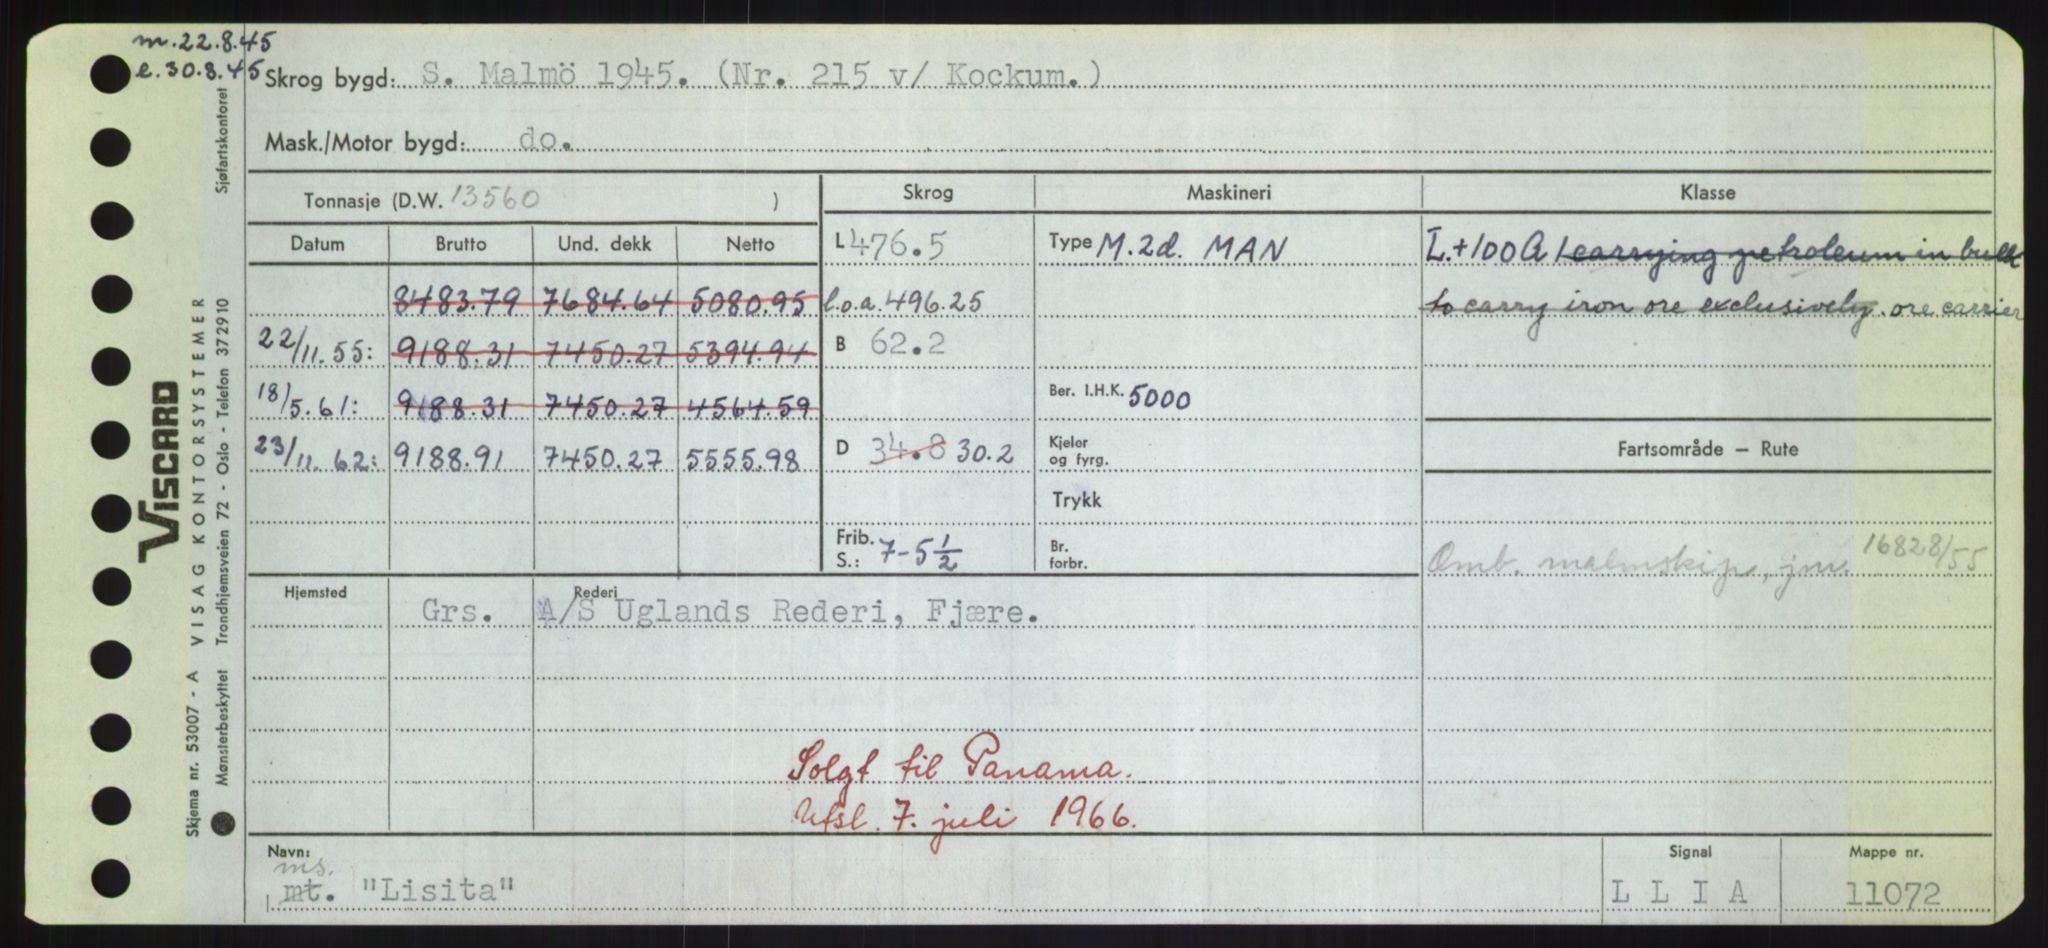 m.22.8.45
e.30.8.45
Skrog bygd: S. Malmö 1945. (Nr. 215 v/ Kockum.)
Mask./Motor bygd: do.
Tonnasje (D.W. 13560 )
Skrog
Maskineri
Klasse
Datum Brutto Und. dekk Netto
L 476.5
Type M. 2d. MAN
L.+100 A 1 carrying petroleum in bulk
8483.79 7684.64 5080.95
l.o.a. 496.25
to carry iron ore exclusively. ore carrier
22/11.55: 9188.31 7450.27 5394.94
B 62.2
18/5.61: 9188.31 7450.27 4564.59
Ber. I.H.K. 5000
23/11.62: 9188.91 7450.27 5555.98
D 34.8 30.2
Kjeler
og fyrg.
Fartsområde – Rute
Trykk
Frib.
S.: 7-5 1/2
Br.
forbr.
Omb. malmskip, jnr. 16828/55
Hjemsted Rederi
Grs. A/S Uglands Rederi, Fjære.
Solgt til Panama.
Utsl. 7. juli 1966.
Navn:
ms.
mt. "Lisita"
Signal
L L I A
Mappe nr.
11072
Skjema nr. 53007 - A VISAG KONTORSYSTEMER
VISCARD
Mønsterbeskyttet Trondhjemsveien 72 - Oslo - Telefon 372910 Sjøfartskontoret